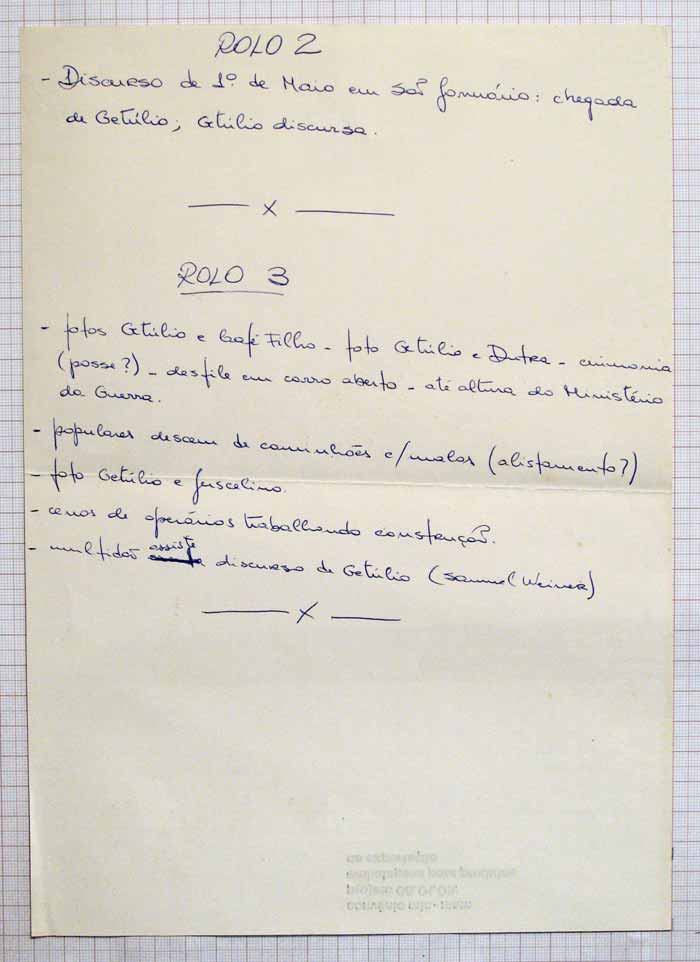 ROLO 2
- Discurso de 1º de Maio em São Januário: chegada
de Getúlio; Getúlio discursa.
x
ROLO 3
- fotos Getúlio e Café Filho - foto Getúlio e Dutra - cerimonia
(posse?) - desfile em carro aberto - até altura do Ministério
da Guerra.
- populares descem de caminhões c/malas (alistamento?)
- foto Getúlio e Juscelino.
- cenas de operários trabalhando construção.
- multidão assiste discurso de Getúlio (Samuel Weiner)
x